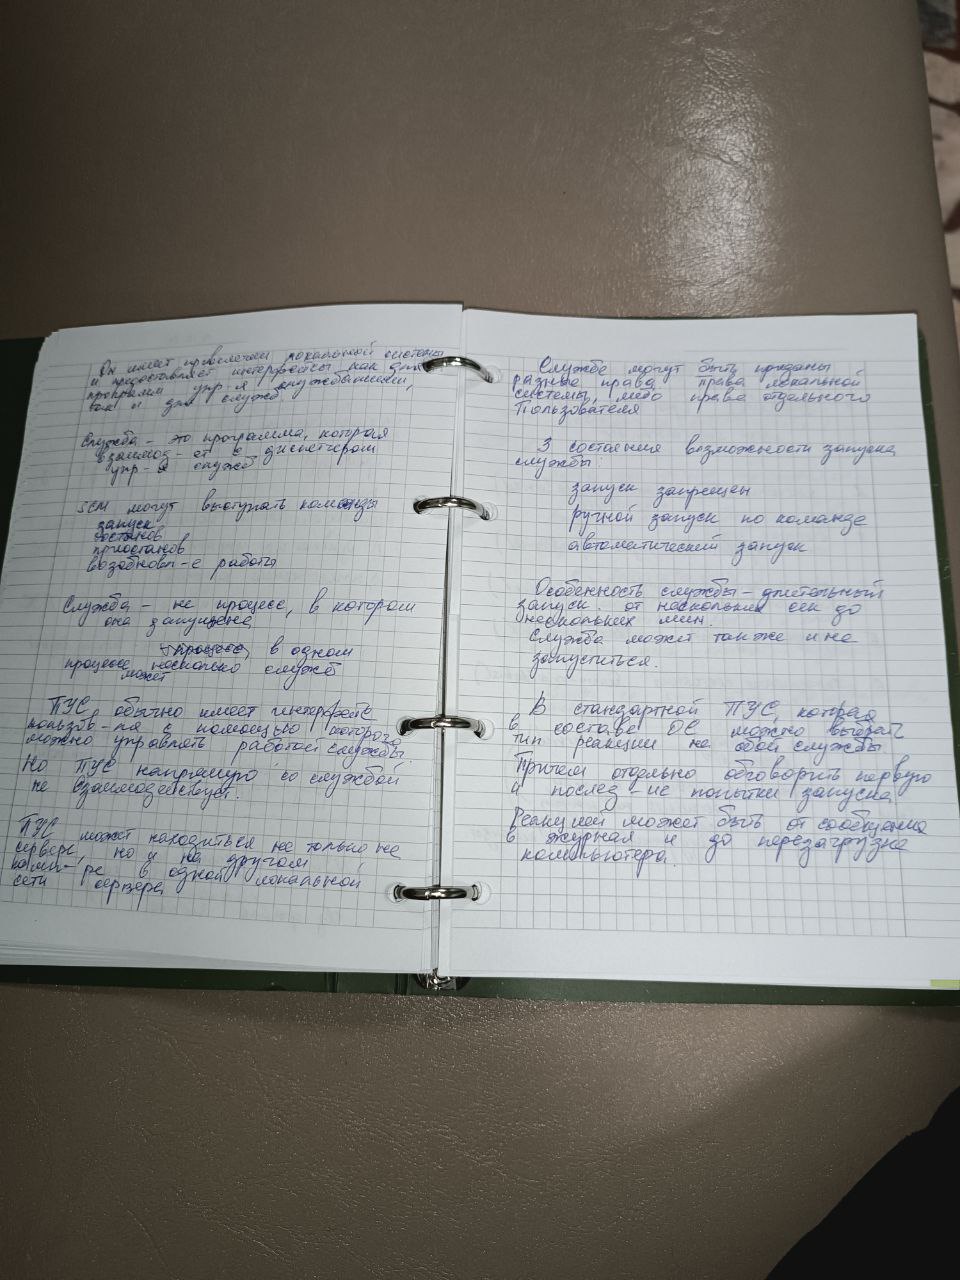 Он имеет привилегии локальной системы
и предоставляет интерфейсы как для
программ упр-я службами,
так и для служб
Служба - это программа, которая
взаимод-ет с диспетчером
упр-я служб
SCM могут выступать команды
запуск
останов
приостанов
возобновл-е работы
Служба - не процесс, в котором
она запущена
в одном
процессе может несколько служб
ПУС обычно имеет интерфейс
пользов-ля с помощью которого
можно управлять работой службы.
Но ПУС напрямую со службой
не взаимодействует.
ПУС может находиться не только на
сервере, но и на другом
комп-ре в одной локальной
сети сервера
Службе могут быть приданы
разные права права локальной
системы, либо права отдельного
Пользователя
3 состояния возможности запуска
службы:
запуск запрещен
ручной запуск по команде
автоматический запуск
Особенность службы - длительный
запуск. от нескольких сек до
нескольких мин.
Служба может также и не
запуститься.
В стандартной ПУС, которая
в составе ОС можно выбрать
тип реакции на сбой службы
Причем отдельно обговорить первую
и послед-ие попытки запуска
Реакцией может быть от сообщения
в журнал и до перезагрузки
компьютера.